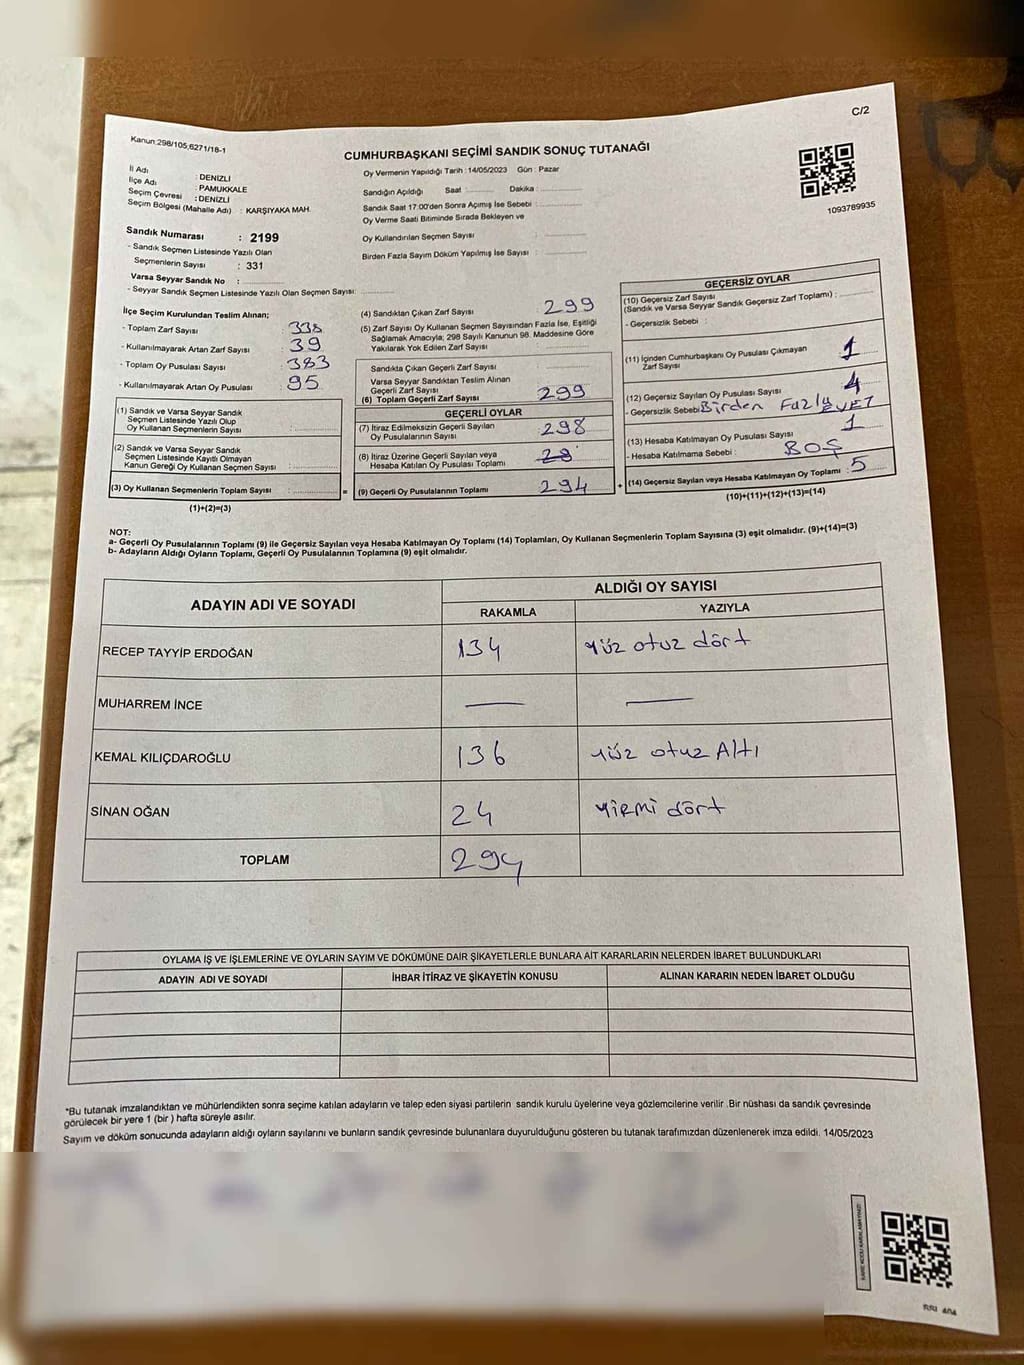 C/2
Kanun:298/105,6271/18-1
CUMHURBAŞKANI SEÇİMİ SANDIK SONUÇ TUTANAĞI
1093789935
İl Adı : DENİZLİ
İlçe Adı : PAMUKKALE
Seçim Çevresi : DENİZLİ
Seçim Bölgesi (Mahalle Adı) : KARŞIYAKA MAH.
Oy Vermenin Yapıldığı Tarih :14/05/2023 Gün : Pazar
Sandığın Açıldığı Saat : Dakika :
Sandık Saat 17:00'den Sonra Açımış İse Sebebi :
Oy Verme Saati Bitiminde Sırada Bekleyen ve
Oy Kullandırılan Seçmen Sayısı :
Birden Fazla Sayım Döküm Yapılmış İse Sayısı :
Sandık Numarası : 2199
- Sandık Seçmen Listesinde Yazılı Olan
Seçmenlerin Sayısı : 331
Varsa Seyyar Sandık No :
- Seyyar Sandık Seçmen Listesinde Yazılı Olan Seçmen Sayısı:
İlçe Seçim Kurulundan Teslim Alınan;
- Toplam Zarf Sayısı : 338
- Kullanılmayarak Artan Zarf Sayısı : 39
- Toplam Oy Pusulası Sayısı : 383
- Kullanılmayarak Artan Oy Pusulası : 95
(1) Sandık ve Varsa Seyyar Sandık
Seçmen Listesinde Yazılı Olup
Oy Kullanan Seçmenlerin Sayısı :
(2) Sandık ve Varsa Seyyar Sandık
Seçmen Listesinde Kayıtlı Olmayan
Kanun Gereği Oy Kullanan Seçmen Sayısı :
(3) Oy Kullanan Seçmenlerin Toplam Sayısı :
(1)+(2)=(3)
(4) Sandıktan Çıkan Zarf Sayısı : 299
(5) Zarf Sayısı Oy Kullanan Seçmen Sayısından Fazla İse, Eşitliği
Sağlamak Amacıyla; 298 Sayılı Kanunun 98. Maddesine Göre
Yakılarak Yok Edilen Zarf Sayısı :
Sandıkta Çıkan Geçerli Zarf Sayısı :
Varsa Seyyar Sandıktan Teslim Alınan
Geçerli Zarf Sayısı :
(6) Toplam Geçerli Zarf Sayısı : 299
GEÇERLİ OYLAR
(7) İtiraz Edilmeksizin Geçerli Sayılan
Oy Pusulalarının Sayısı : 298
(8) İtiraz Üzerine Geçerli Sayılan veya
Hesaba Katılan Oy Pusulası Toplamı :
= (9) Geçerli Oy Pusulalarının Toplamı : 294
GEÇERSİZ OYLAR
(10) Geçersiz Zarf Sayısı
(Sandık ve Varsa Seyyar Sandık Geçersiz Zarf Toplamı) :
- Geçersizlik Sebebi :
(11) İçinden Cumhurbaşkanı Oy Pusulası Çıkmayan
Zarf Sayısı : 1
(12) Geçersiz Sayılan Oy Pusulası Sayısı : 4
- Geçersizlik Sebebi Birden Fazla EVET
(13) Hesaba Katılmayan Oy Pusulası Sayısı : 1
- Hesaba Katılmama Sebebi : BOŞ
+ (14) Geçersiz Sayılan veya Hesaba Katılmayan Oy Toplamı : 5
(10)+(11)+(12)+(13)=(14)
NOT:
a- Geçerli Oy Pusulalarının Toplamı (9) ile Geçersiz Sayılan veya Hesaba Katılmayan Oy Toplamı (14) Toplamları, Oy Kullanan Seçmenlerin Toplam Sayısına (3) eşit olmalıdır. (9)+(14)=(3)
b- Adayların Aldığı Oyların Toplamı, Geçerli Oy Pusulalarının Toplamına (9) eşit olmalıdır.
ADAYIN ADI VE SOYADI
ALDIĞI OY SAYISI
RAKAMLA YAZIYLA
RECEP TAYYİP ERDOĞAN 134 yüz otuz dört
MUHARREM İNCE — —
KEMAL KILIÇDAROĞLU 136 yüz otuz Altı
SİNAN OĞAN 24 yirmi dört
TOPLAM 294
OYLAMA İŞ VE İŞLEMLERİNE VE OYLARIN SAYIM VE DÖKÜMÜNE DAİR ŞİKAYETLERLE BUNLARA AİT KARARLARIN NELERDEN İBARET BULUNDUKLARI
ADAYIN ADI VE SOYADI İHBAR İTİRAZ VE ŞİKAYETİN KONUSU ALINAN KARARIN NEDEN İBARET OLDUĞU
*Bu tutanak imzalandıktan ve mühürlendikten sonra seçime katılan adayların ve talep eden siyasi partilerin sandık kurulu üyelerine veya gözlemcilerine verilir .Bir nüshası da sandık çevresinde
görülecek bir yere 1 (bir ) hafta süreyle asılır.
Sayım ve döküm sonucunda adayların aldığı oyların sayılarını ve bunların sandık çevresinde bulunanlara duyurulduğunu gösteren bu tutanak tarafımızdan düzenlenerek imza edildi. 14/05/2023